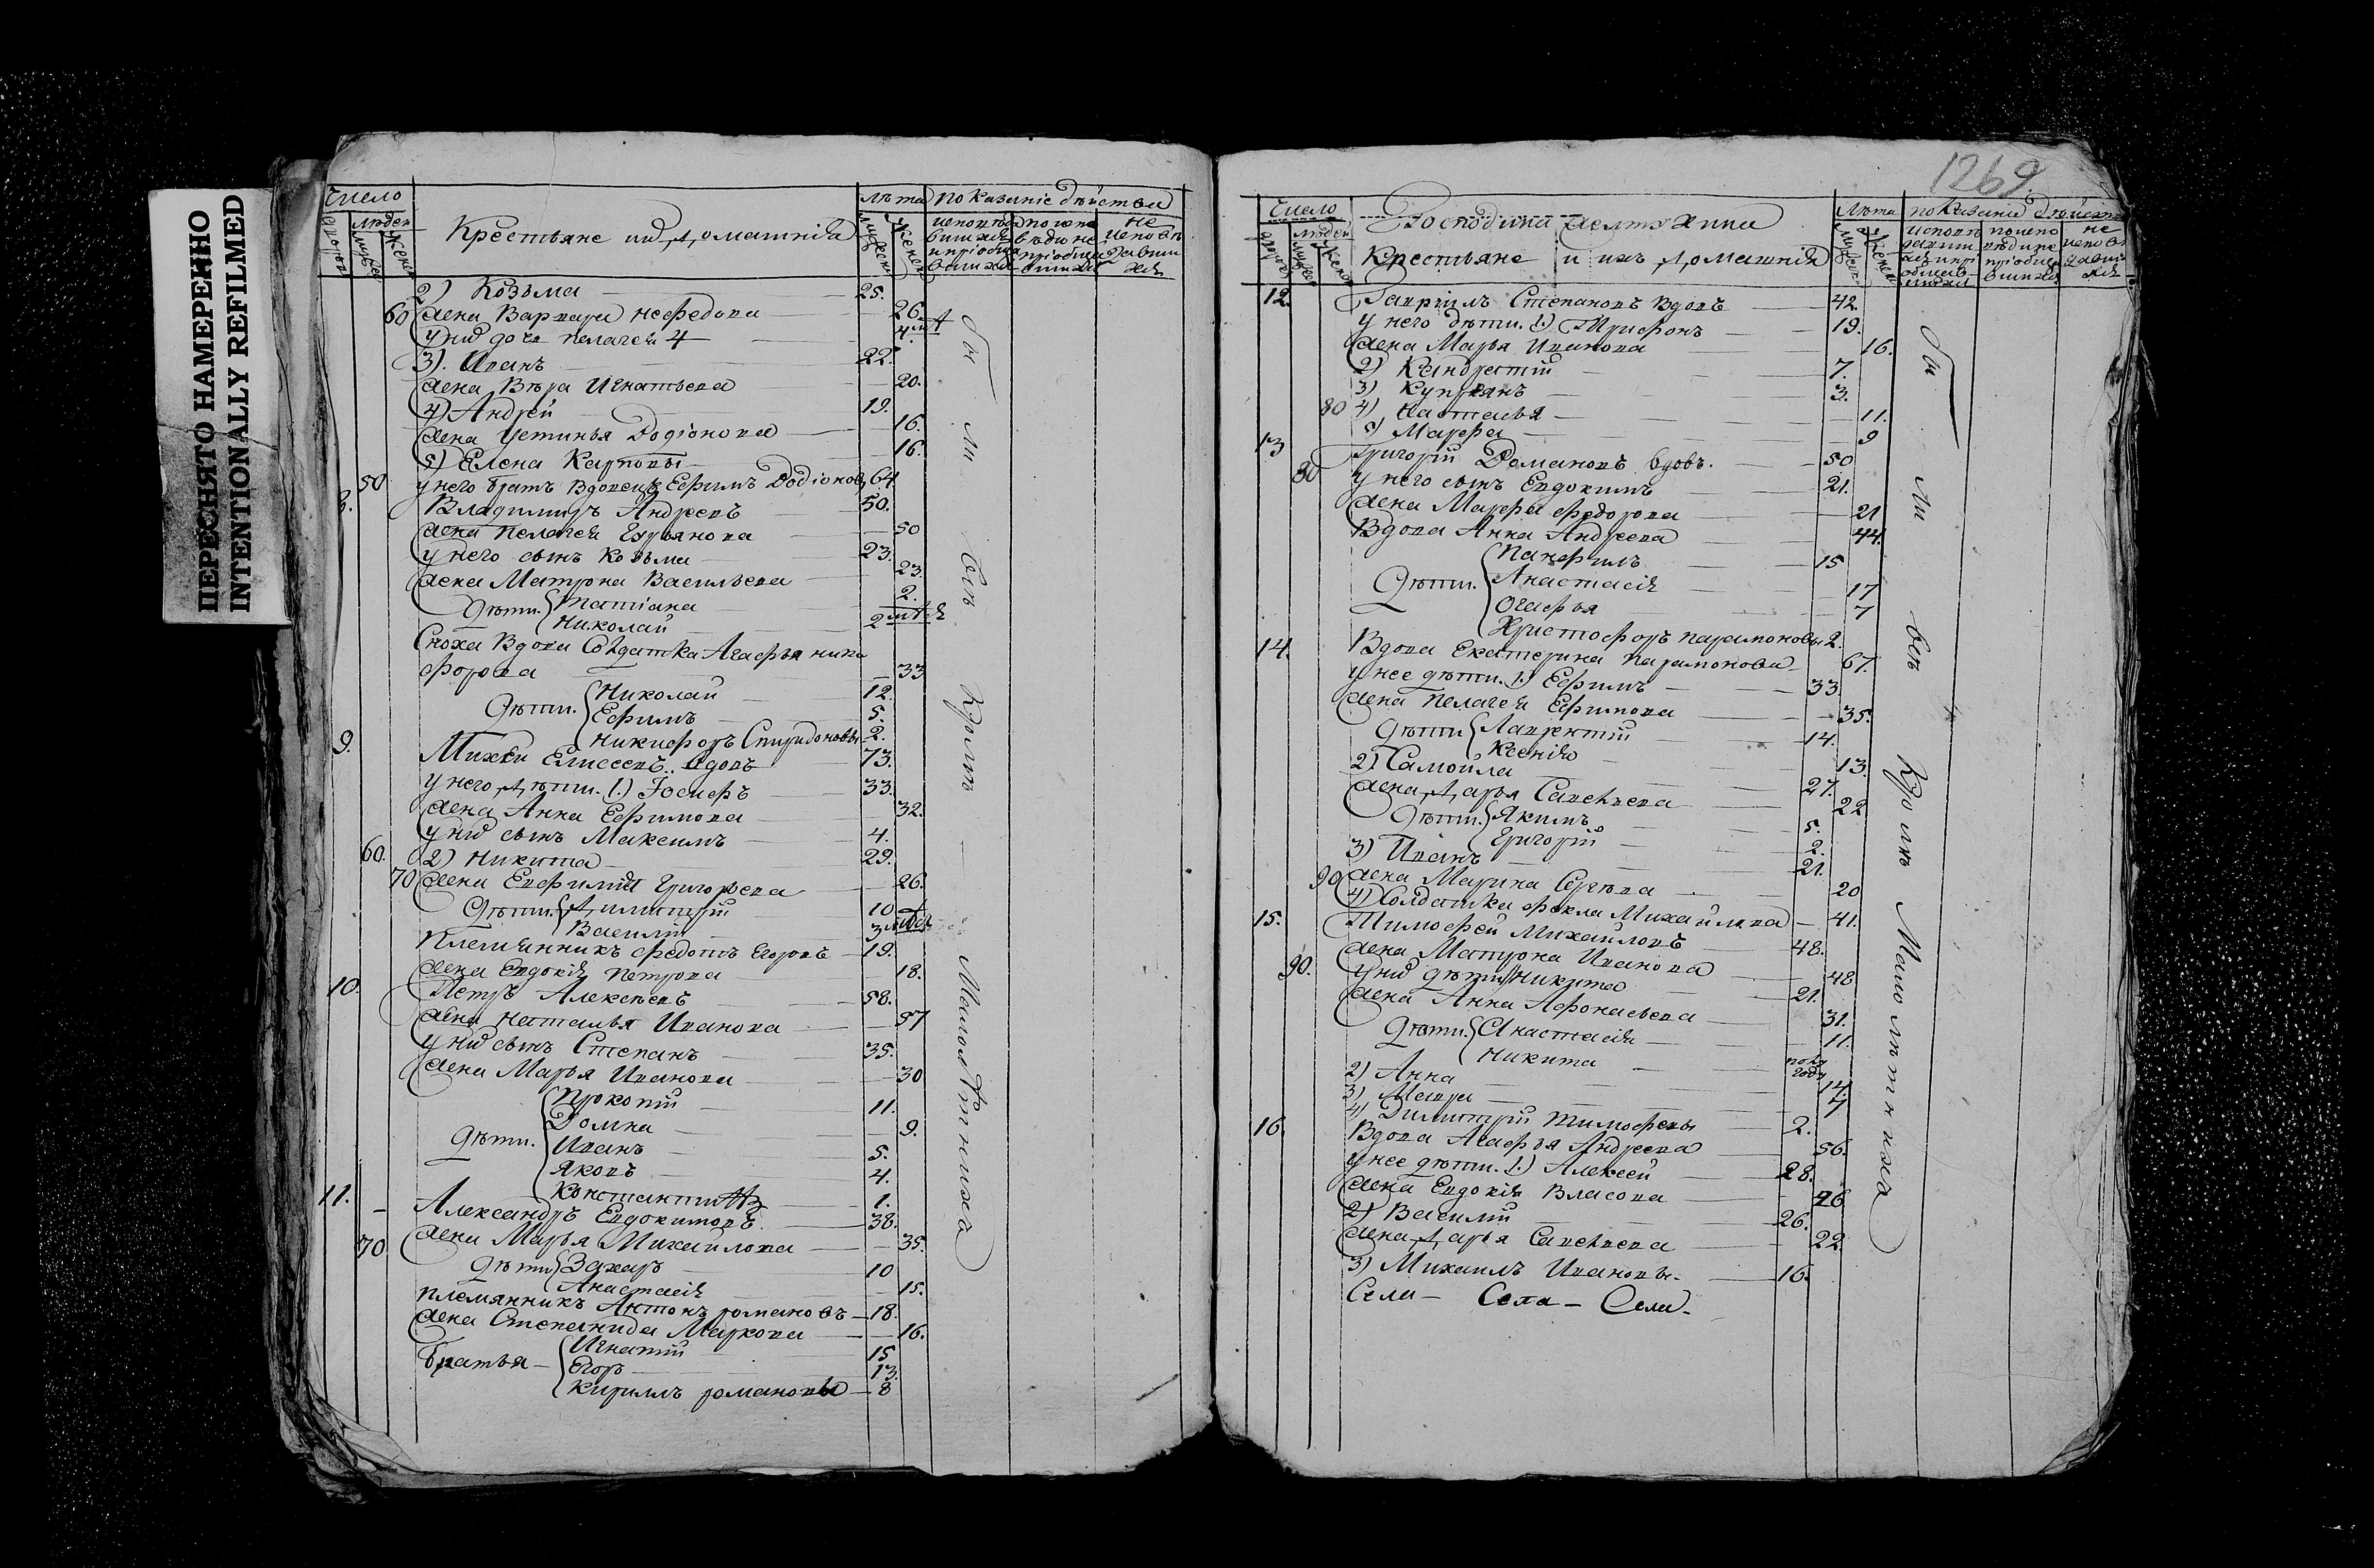 ПЕРЕСНЯТО НАМЕРЕННО
INTENTIONALLY REFILMED
Число
людей
Крестьяне их домашнія
Лѣта
показаніе дѣйства
2) Козьма 25.
60 жена Варвара Нефедова 26
у них дочь Пелагея 4
3). Иванъ 22.
жена Вѣра Игнатьева 20.
4) Андрей 19.
жена Устинья Родіонова 16.
5) Елена Карповы 16.
50 у него братъ вдовецъ Ефимъ Родіоновъ 64
Владимиръ Андреевъ 50.
жена Пелагея 50
у него сынъ Козьма 23.
жена Матрона Васильева 23.
Дѣти. Татіана 2.
Николай 2
Сноха Вдова Солдатка Агафья Ники
форова 33
Дѣти. Николай 12.
Ефимъ 5.
Никифоръ Спиридоновы 2.
9. Михѣй Елисеевъ вдовъ 73.
у него дѣти. 1.) Іосифъ 33.
жена Анна Ефимова 32.
у них сынъ Максимъ 4.
60. 2) Никита 29.
70 жена Евфимія Григорьева 26.
Дѣти. Димитрій 10
Василій 3
Племянникъ Федотъ Егоровъ 19.
жена Евдокія Петрова 18.
10. Петръ Алексѣевъ 58.
жена Наталья Иванова 57
у них сынъ Степанъ 35.
жена Марья Иванова 30
Дѣти. Прокопій 11.
Домна 9.
Иванъ 5.
Яковъ 4.
Константинъ 1.
11. Александръ Евдокимовъ 38.
70 жена Марья Михайлова 35.
Дѣти Захаръ 10
Анастасія 15.
племянникъ Антонъ романовъ 18.
жена Степанида Маркова 16.
Братья Игнатій 15
Егоръ 13.
Кириллъ романовы 8
бы ли всѣ Кромѣ Малолѣтнихъ
1269.
Число
людей
Господина Желтухина
Крестьяне и ихъ домашнія
Лѣта
показаніе дѣйства
12. Гавріилъ Степановъ Вдовъ 42.
у него дѣти. 1.) Трифонъ 19.
жена Марья Иванова 16.
2) Кандратій 7.
3) Купріянъ 3.
80 4) Наталья 11.
5) Марфа 9
13 Григорій Романовъ вдовъ. 50
80 у него сынъ Евдокимъ 21.
жена Марфа Федорова 21
Вдова Анна Андреева 44.
Дѣти. Панфилъ 15
Анастасія 17
Огафья 7
Христофоръ Парамоновы 2.
14. Вдова Екатерина Парамонова 67.
у нее дѣти. 1.) Ефимъ 33.
жена Пелагея Ефимова 35.
Дѣти Лаврентій 14.
Ксенія 13.
2) Самойла 27.
жена Дарья Савельева 22
Дѣти. Якимъ 5.
Григорій 2.
3) Иванъ 21.
90 жена Марина Сергѣева 20
4) Солдатка Фекла Михайлова 41.
15. Тимофей Михайловъ 48.
жена Матрона Иванова 48
90. у них дѣти Никита 21.
жена Анна Афонасьева 31.
Дѣти. Анастасія 11.
Никита полу года
2) Анна 14.
3) Мавра 7
4) Димитрій Тимофеевы 2.
16. Вдова Агафья Андреева 56.
у нее дѣти. 1.) Алексей 28.
жена Евдокія Власова 26
2) Василій 26.
жена Дарья Савельева 22.
3) Михаилъ Ивановы. 16.
Села — Села — Села
бы ли всѣ Кромѣ Малолѣтнихъ